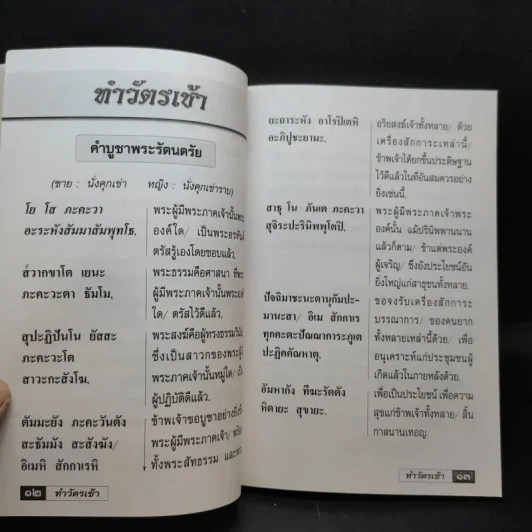 ทำวัตรเช้า
คำบูชาพระรัตนตรัย
(ชาย : นั่งคุกเข่า หญิง : นั่งคุกเข่าราบ)
โย โส ภะคะวา
อะระหังธัมมาสัมพุทโธ,
พระผู้มีพระภาคเจ้านั้นพระ
องค์ใด/ เป็นพระอรหันต์
ตรัสรู้เองโดยชอบแล้ว.
ส๎วากขาโต เยนะ
ภะคะวะตา ธัมโม,
พระธรรมคือศาสนา ที่พระ
ผู้มีพระภาคเจ้านั้นพระองค์
ใด/ ตรัสไว้ดีแล้ว.
สุปะฏิปันโน ยัสสะ
ภะคะวะโต
สาวะกะสังโฆ,
พระสงฆ์คือผู้ทรงธรรมวินัย
ซึ่งเป็นสาวกของพระผู้มี
พระภาคเจ้านั้นหมู่ใด/ เป็น
ผู้ปฏิบัติดีแล้ว.
ตัมมะยัง ภะคะวันตัง
สะธัมมัง สะสังฆัง/
อิเมหิ สักกาเรหิ
ข้าพเจ้าขอบูชาอย่างยิ่งซึ่ง
พระผู้มีพระภาคเจ้า/ พร้อม
ทั้งพระสัทธรรม และพระ
๑๒ ทำวัตรเช้า
ยะถาระหัง อาโรปิเตหิ
อะภิปูชะยามะ.
อริยสงฆ์เจ้าทั้งหลาย/ ด้วย
เครื่องสักการะเหล่านี้/
ข้าพเจ้าได้ยกขึ้นประดิษฐาน
ไว้ดีแล้วในที่อันสมควรอย่าง
ยิ่งเช่นนี้.
สาธุ โน ภันเต ภะคะวา
สุจิระปะรินิพพุโตปิ.
พระผู้มีพระภาคเจ้าพระ
องค์นั้น แม้ปรินิพพานนาน
แล้วก็ตาม/ ข้าแต่พระองค์
ผู้เจริญ/ ซึ่งยังประโยชน์อัน
ยิ่งใหญ่แก่สาธุชนทั้งหลาย.
ปัจฉิมาชะนะตานุกัมปะ-
มานะสา/ อิเม สักกาเร
ทุคคะตะปัณณาการะภูเต
ปะฏิคคัณหาตุ,
ขอจงรับเครื่องสักการะ
บรรณาการ/ ของคนยาก
ทั้งหลายเหล่านี้ด้วย/ เพื่อ
อนุเคราะห์แก่ประชุมชนผู้
เกิดแล้วในภายหลังด้วย.
อัมหากัง ทีฆะรัตตัง
หิตายะ สุขายะ.
เพื่อเป็นประโยชน์ เพื่อความ
สุขแก่ข้าพเจ้าทั้งหลาย/ สิ้น
กาลนานเทอญ.
ทำวัตรเช้า ๑๓